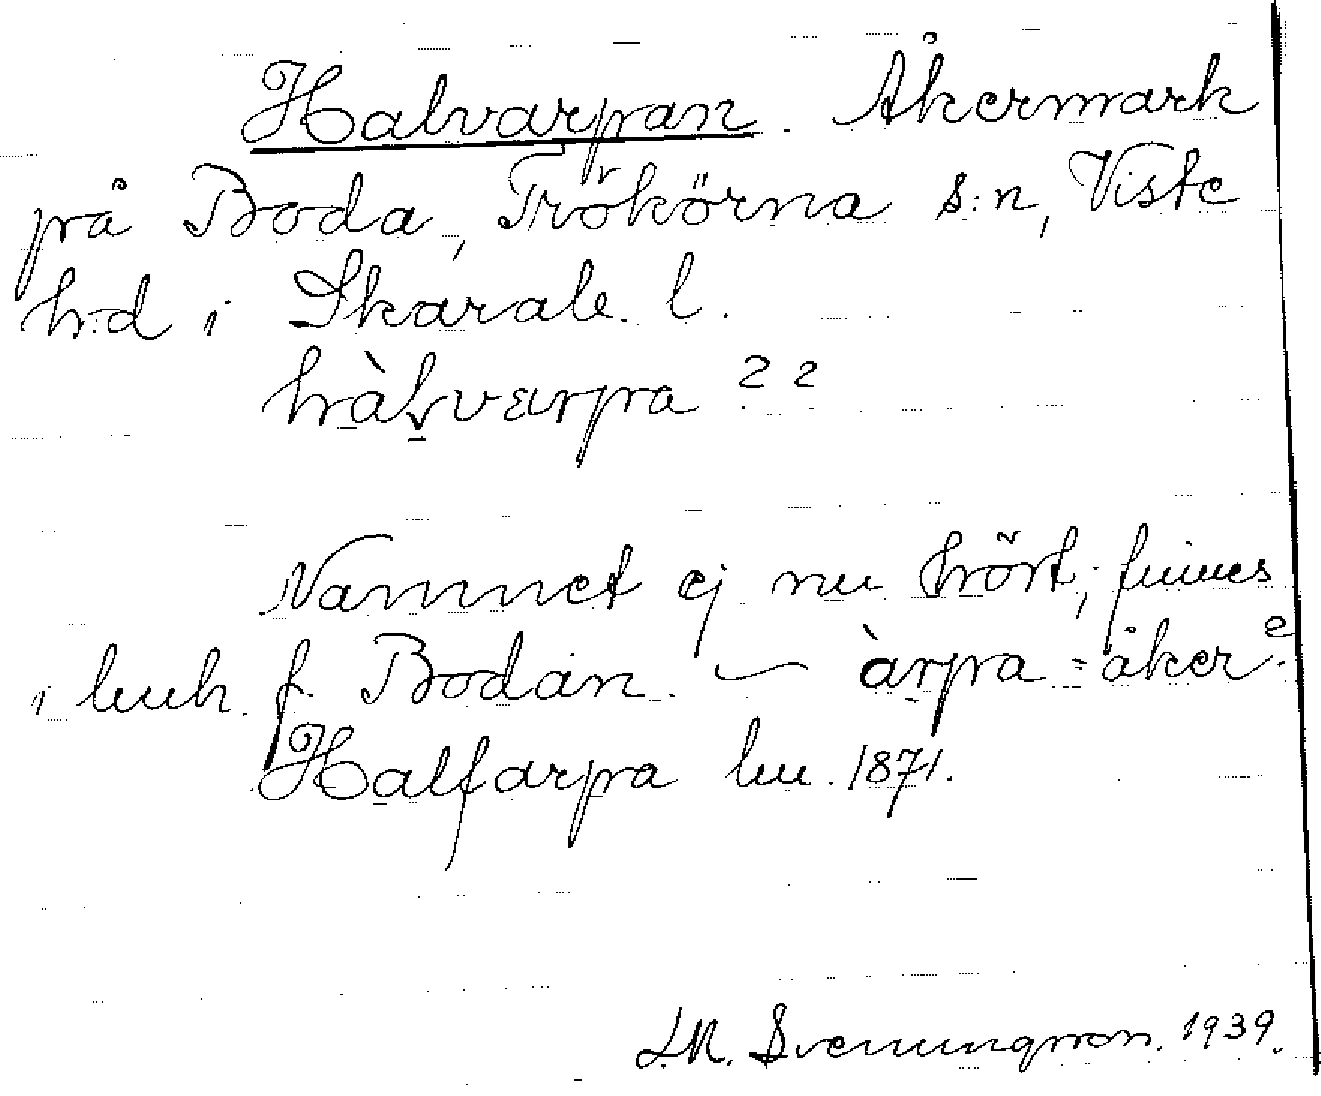 Halvarpan. Åkermark
på Boda, Trökörna s:n, Viste
h:d i Skarab. l.
hàlvarpa 2 2
Namnet ej nu hört; finnes
i luh. f. Bodan. — àrpa = åker?
Halfarpa lu. 1871.
S. Svenungsson. 1939.